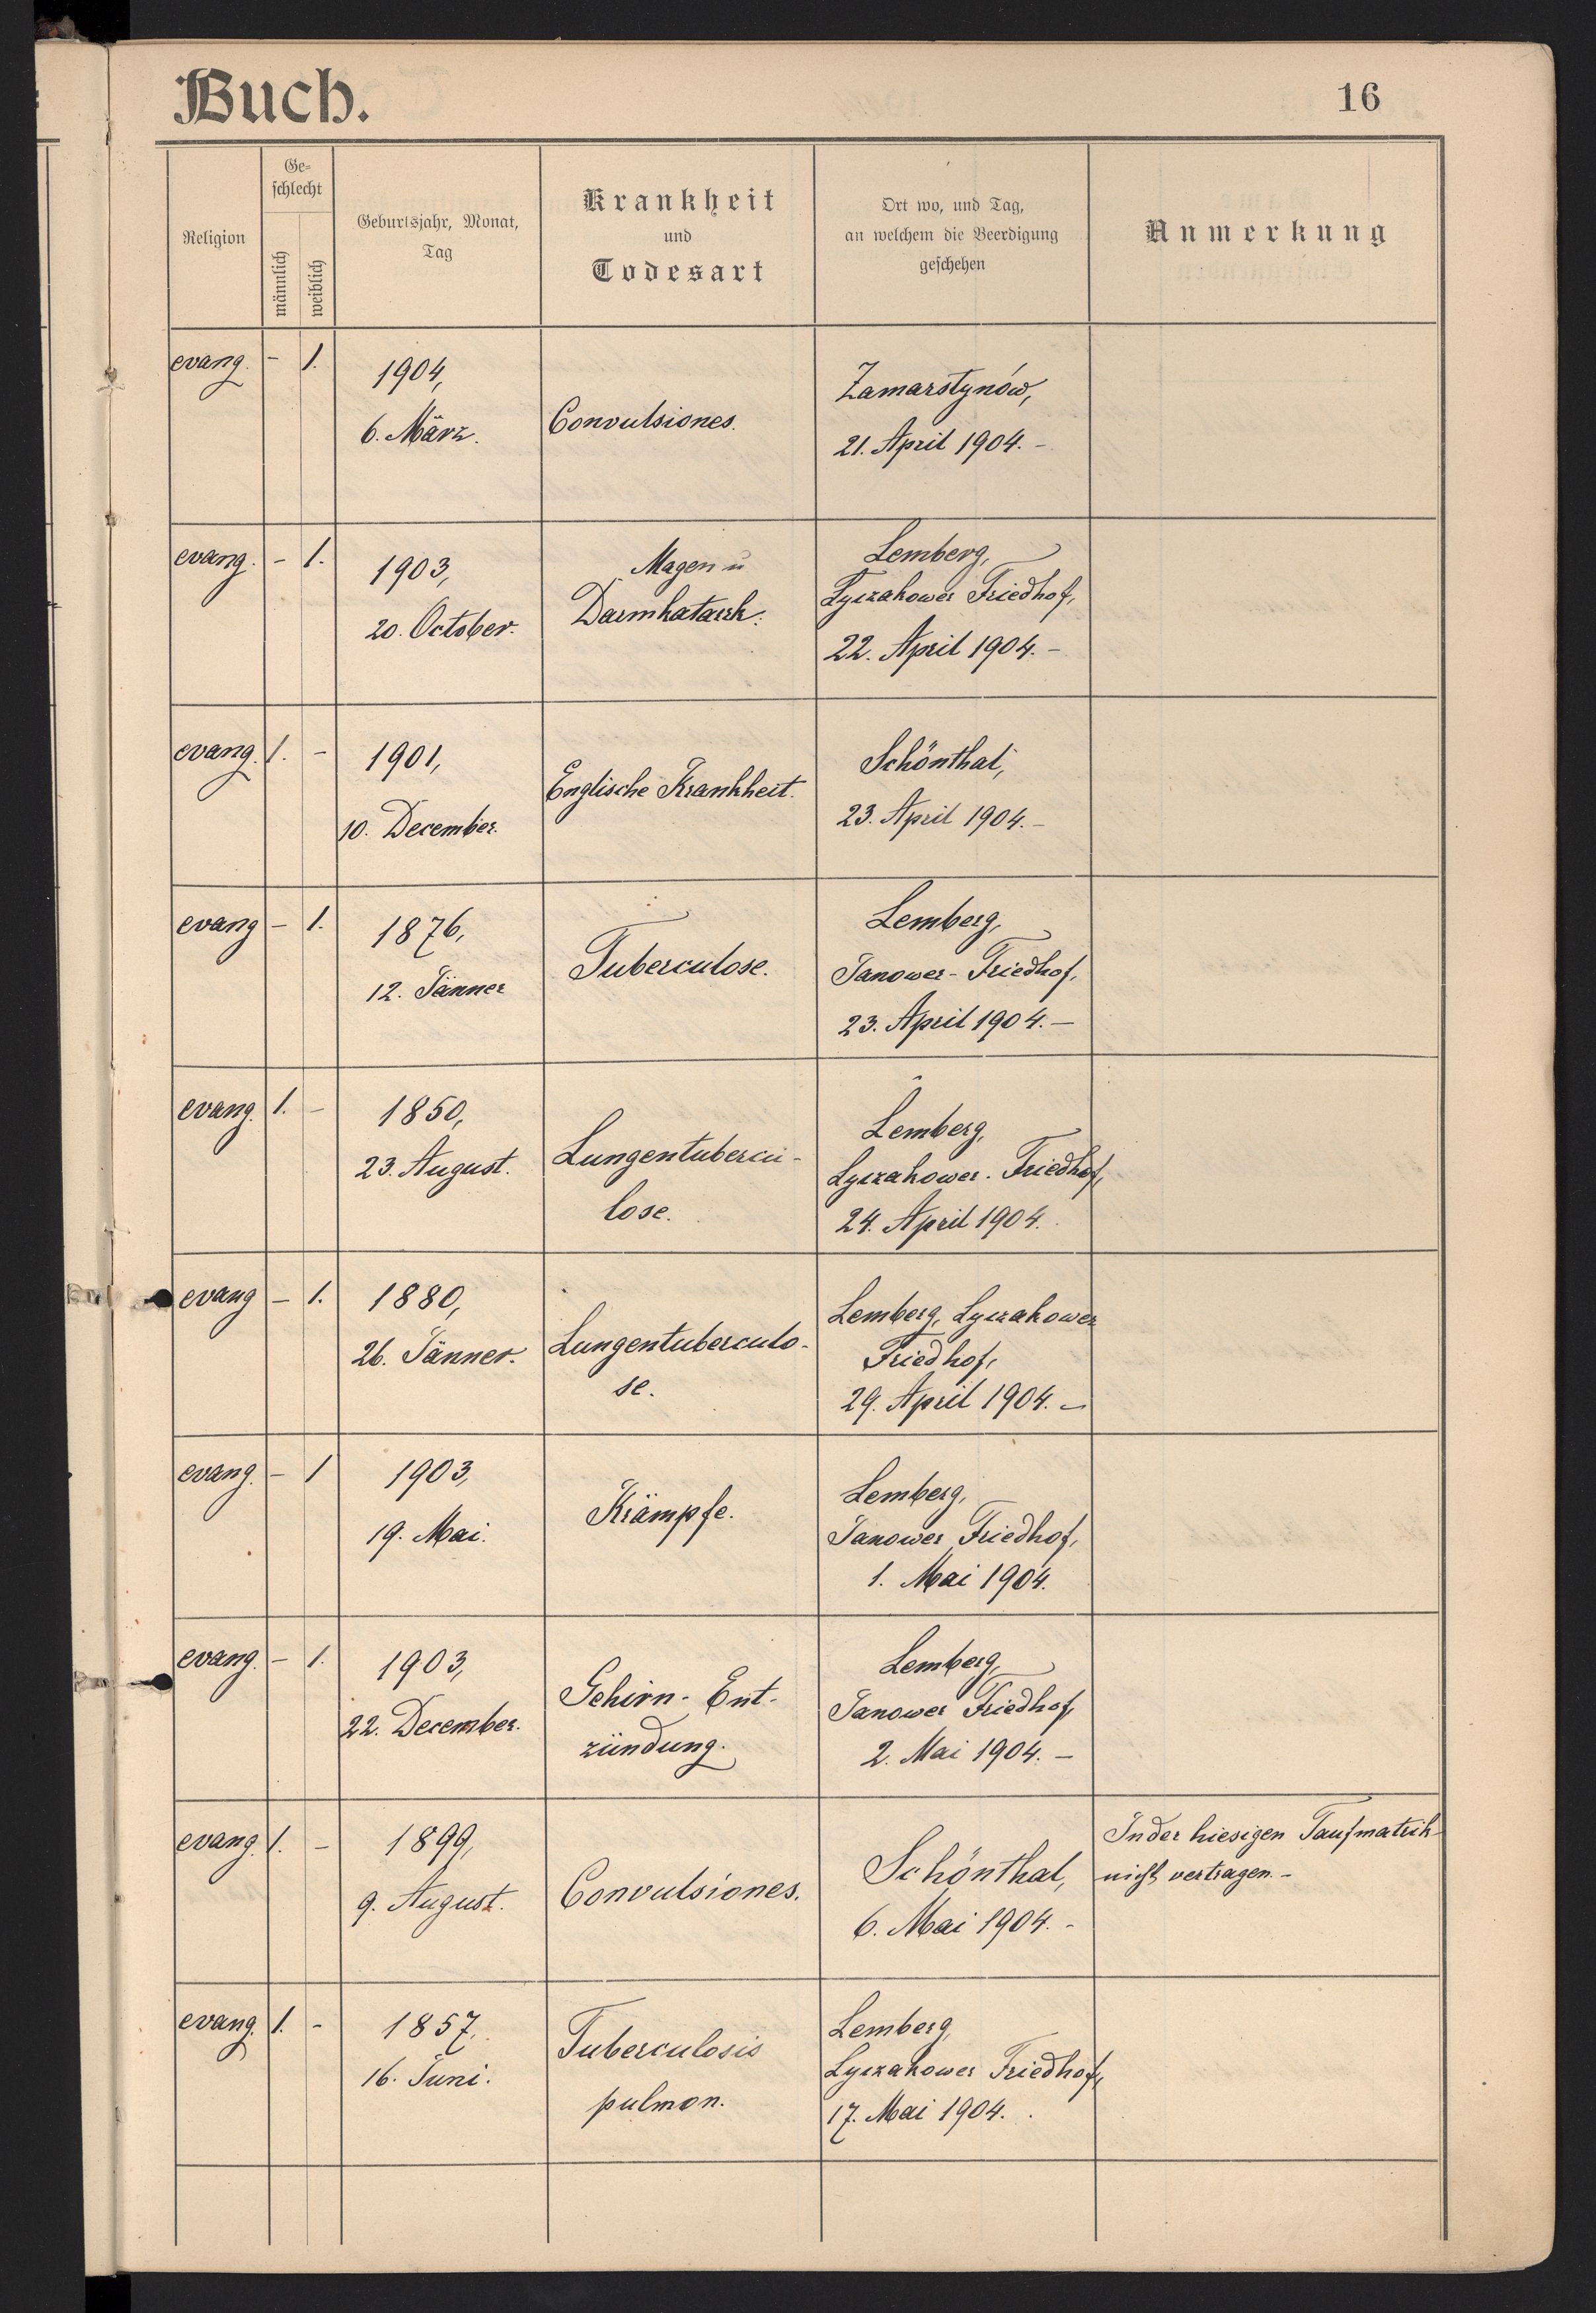 Buch.
16
Religion
Ge-
schlecht
männlich
weiblich
Geburtsjahr, Monat,
Tag
Krankheit
und
Todesart
Ort wo, und Tag,
an welchem die Beerdigung
geschehen
Anmerkung
evang. - 1.
1904,
6. März.
Convulsiones.
Zamarstynów,
21. April 1904. -
evang. - 1.
1903,
20. October.
Magen u
Darmkatarrh.
Lemberg,
Lyczakower Friedhof,
22. April 1904. -
evang. 1. -
1901,
10. December.
Englische Krankheit.
Schönthal,
23. April 1904. -
evang - 1.
1876,
12. Jänner
Tuberculose.
Lemberg,
Janower-Friedhof,
23. April 1904. -
evang. 1. -
1850,
23. August.
Lungentubercu-
lose.
Lemberg,
Lyczakower. Friedhof,
24. April 1904.
evang - 1.
1880,
26. Jänner.
Lungentuberculo-
se.
Lemberg, Lyczakower
Friedhof,
29. April 1904. -
evang. - 1
1903,
19. Mai.
Krämpfe.
Lemberg,
Janower Friedhof,
1. Mai 1904.
evang. - 1.
1903,
22. December.
Gehirn-Ent-
zündung.
Lemberg,
Janower Friedhof,
2. Mai 1904. -
evang. 1. -
1899,
9. August.
Convulsiones.
Schönthal,
6. Mai 1904. -
In der hiesigen Taufmatrik
nicht vertragen. -
evang. 1. -
1857,
16. Juni.
Tuberculosis
pulmon.
Lemberg,
Lyczakower Friedhof,
17. Mai 1904.